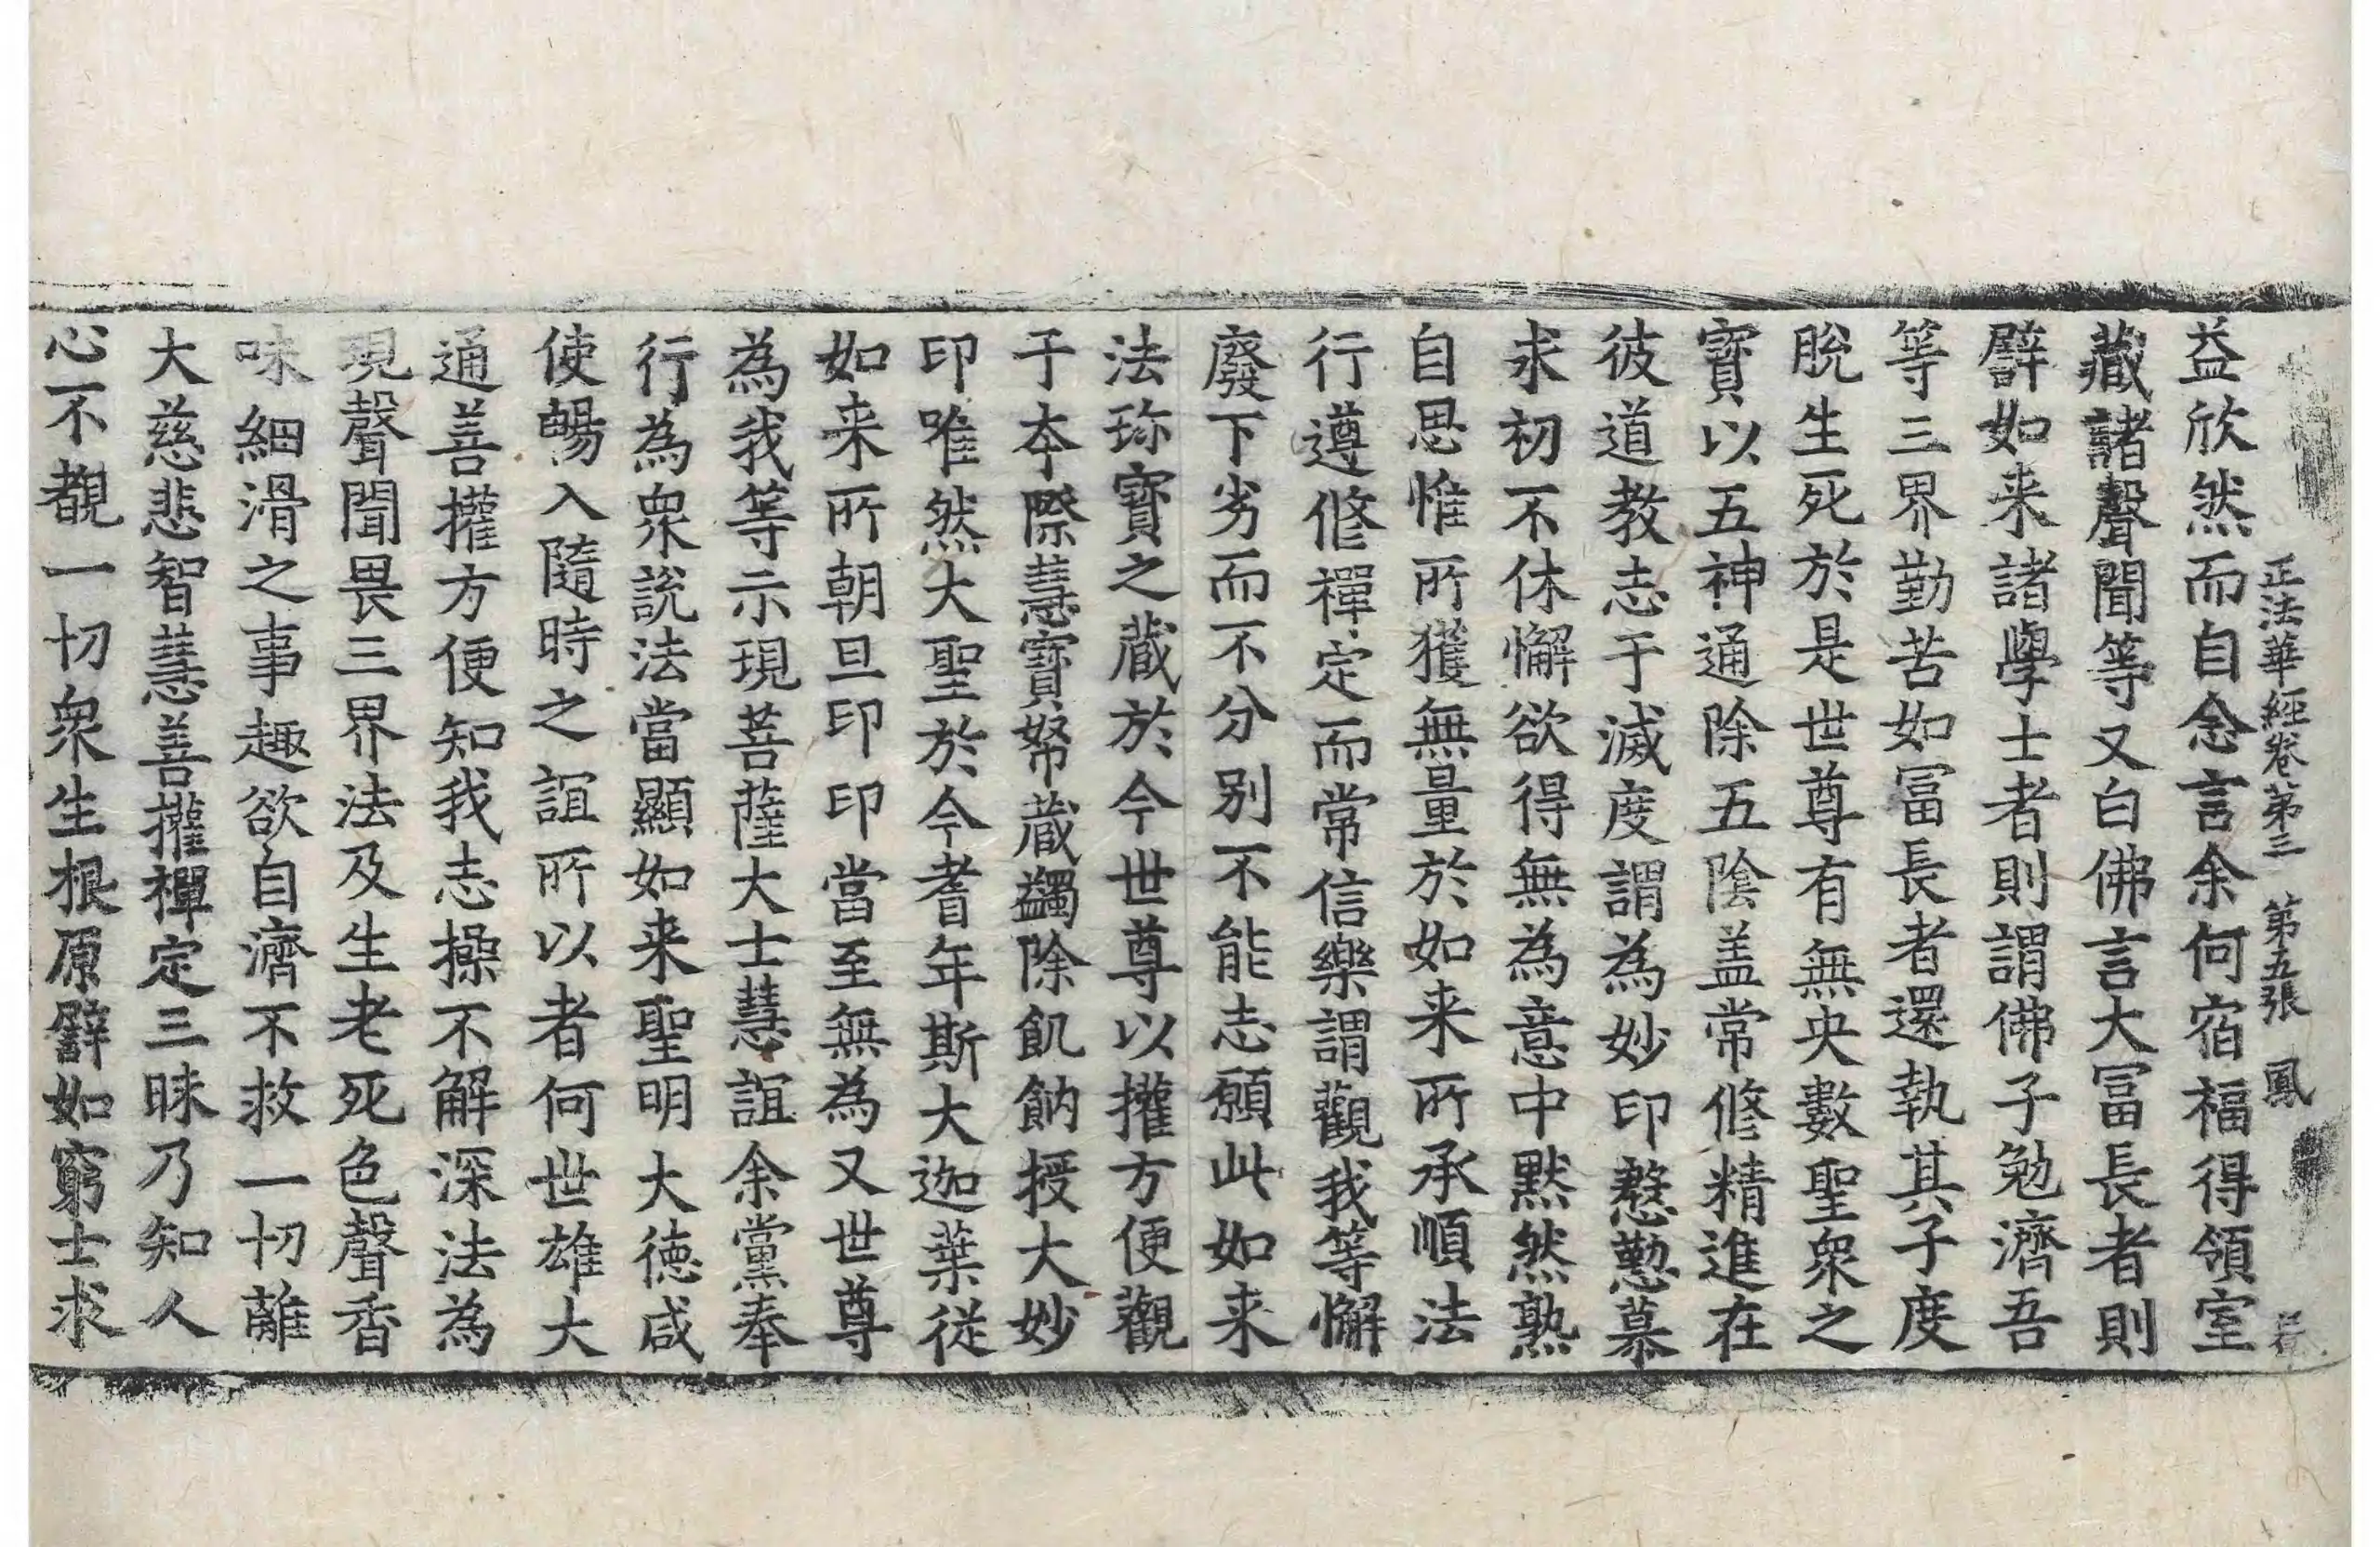 正法華經卷第三 第五張 鳳
益欣然而自念言余何宿福得領室
藏諸聲聞等又白佛言大冨長者則
譬如来諸學士者則謂佛子勉濟吾
等三界勤苦如冨長者還執其子度
脫生死於是世尊有無央數聖衆之
寶以五神通除五陰盖常修精進在
彼道教志于滅度謂為妙印慇懃慕
求初不休懈欲得無為意中默然熟
自思惟所獲無量於如来所承順法
行遵修禪定而常信樂謂觀我等懈
廢下劣而不分别不能志願此如来
法珎寶之蔵於今世尊以權方便觀
于夲際慧寶帑蔵蠲除飢餉授大妙
印唯然大聖於今耆年斯大迦葉従
如来所朝旦印印當至無為又世尊
為我等示現菩薩大士慧誼余黨奉
行為衆說法當顯如来聖明大徳咸
使暢入隨時之誼所以者何世雄大
通善權方便知我志操不解深法為
現聲聞畏三界法及生老死色聲香
味細滑之事趣欲自濟不救一切離
大慈悲智慧善權禪定三昧乃知人
心不覩一切衆生根原譬如窮士求